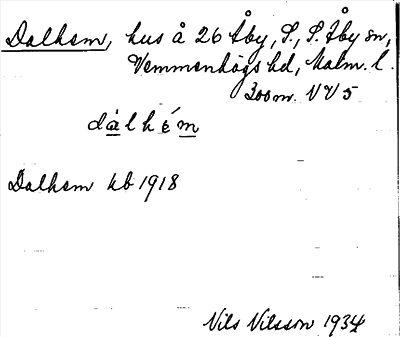 Dalhem, hus å 26 Åby, S., S. Åby sn,
Vemmenhögs hd, Malm. l.
300 m. NV 5
dàlhém
Dalhem kb 1918
Nils Nilsson 1934